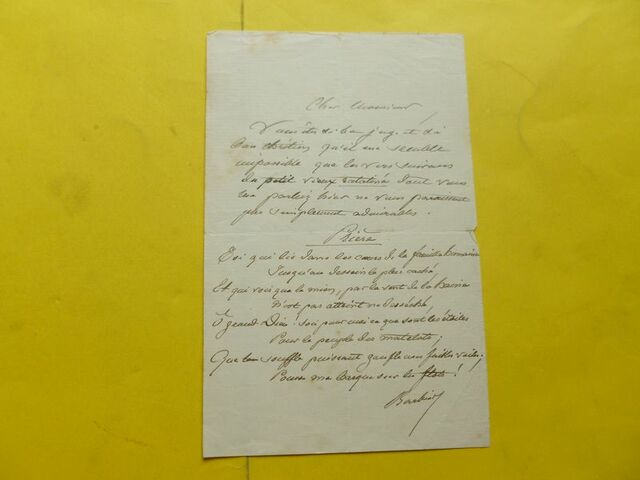 Cher Monsieur
Vous êtes si bon juge et si
bon chrétien qu'il me semble
impossible que les vers suivans
du petit vieux dont vous
me parliez hier ne vous paraissent
pas simplement admirables.
Prière
Toi qui lis dans les cœurs de la famille humaine
Jusqu'au dessein le plus caché,
Et qui vois que le mien, par le vent de la haine
N'est pas atteint ni desséché,
O grand Dieu! sois pour moi ce que sont les étoiles
Pour le peuple des matelots;
Que ton souffle puissant gonfle mes faibles voiles,
Pousse ma barque sur les flots!